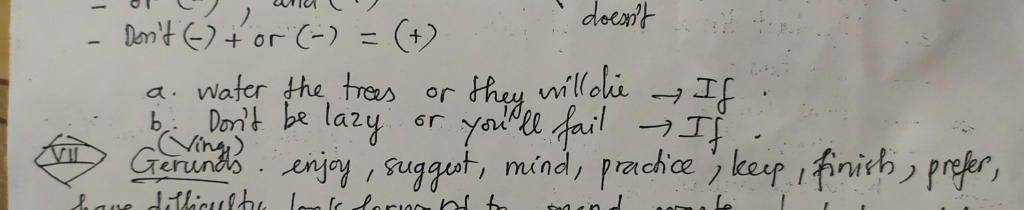 - or (-), and (+)
doesn't
- Don't (-) + or (-) = (+)
a. Water the trees or they will die → If .
b. Don't be lazy or you'll fail → If .
(Ving)
VII Gerunds . enjoy , suggest, mind, practice , keep , finish , prefer,
have difficulty, look forward to